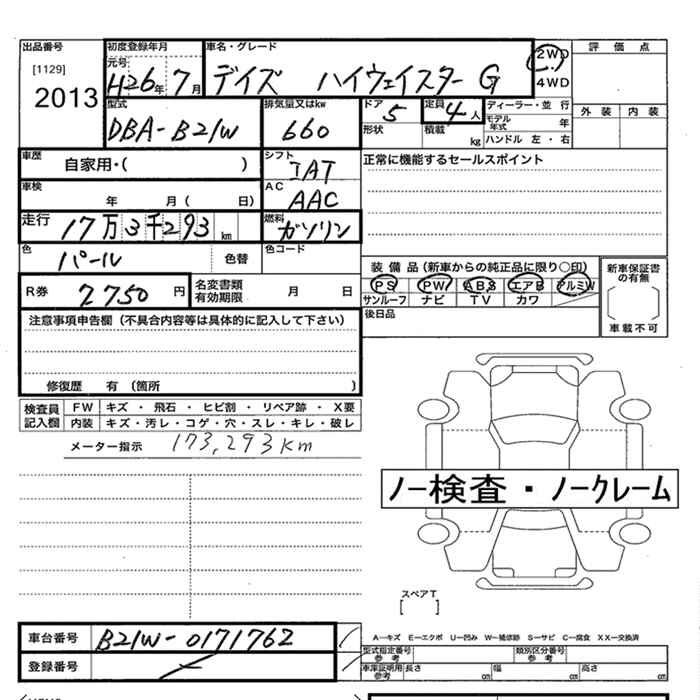 出品番号 初度登録年月 車名・グレード 2WD 評価点
[1129] 元号
2013 H26年 7月 デイズ ハイウェイスター G 4WD
型式 排気量又はkw ドア 定員 ディーラー・並行 外装 内装
DBA-B21W 660 5 4人 モデル年式 年
形状 積載 kg ハンドル 左・右
車歴 自家用・( ) シフト IAT 正常に機能するセールスポイント
車検 年 月( 日) AC AAC
走行 17万3千293km 燃料 ガソリン
色 パール 色替 色コード
装備品(新車からの純正品に限り○印) 新車保証書の有無
R券 2750円 名変書類有効期限 月 日 PS PW ABS エアB アルミW
サンルーフ ナビ TV カワ
注意事項申告欄(不具合内容等は具体的に記入して下さい) 後日品 車載不可
修復歴 有(箇所 )
検査員記入欄 FW キズ・飛石・ヒビ割・リペア跡・X要
内装 キズ・汚レ・コゲ・穴・スレ・キレ・破レ
メーター指示 173,293km
ノー検査・ノークレーム
スペアT
[ ]
車台番号 B21W-0171762 A―キズ E―エクボ U―凹み W―補修跡 S―サビ C―腐食 XX―交換済
型式指定番号 参考 類別区分番号 参考
登録番号 車庫証明用 参考 長さ cm 幅 cm 高さ cm